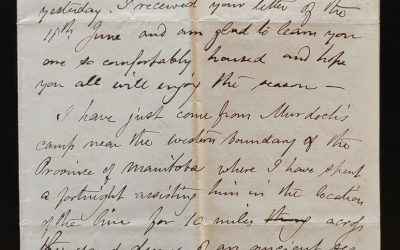 yesterday. I received your letter of the
18th June and am glad to learn you
are so comfortably housed and hope
you all will enjoy the season —
I have just come from Murdoch's
camp near the western boundary of the
Province of Manitoba where I have spent
a fortnight assisting him in the location
of the line for 10 miles across
of an ancient